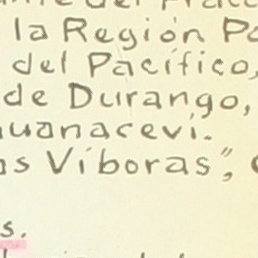 la Región
del Pacífico,
de Durango,
uanaceví.
os Víboras",
s.